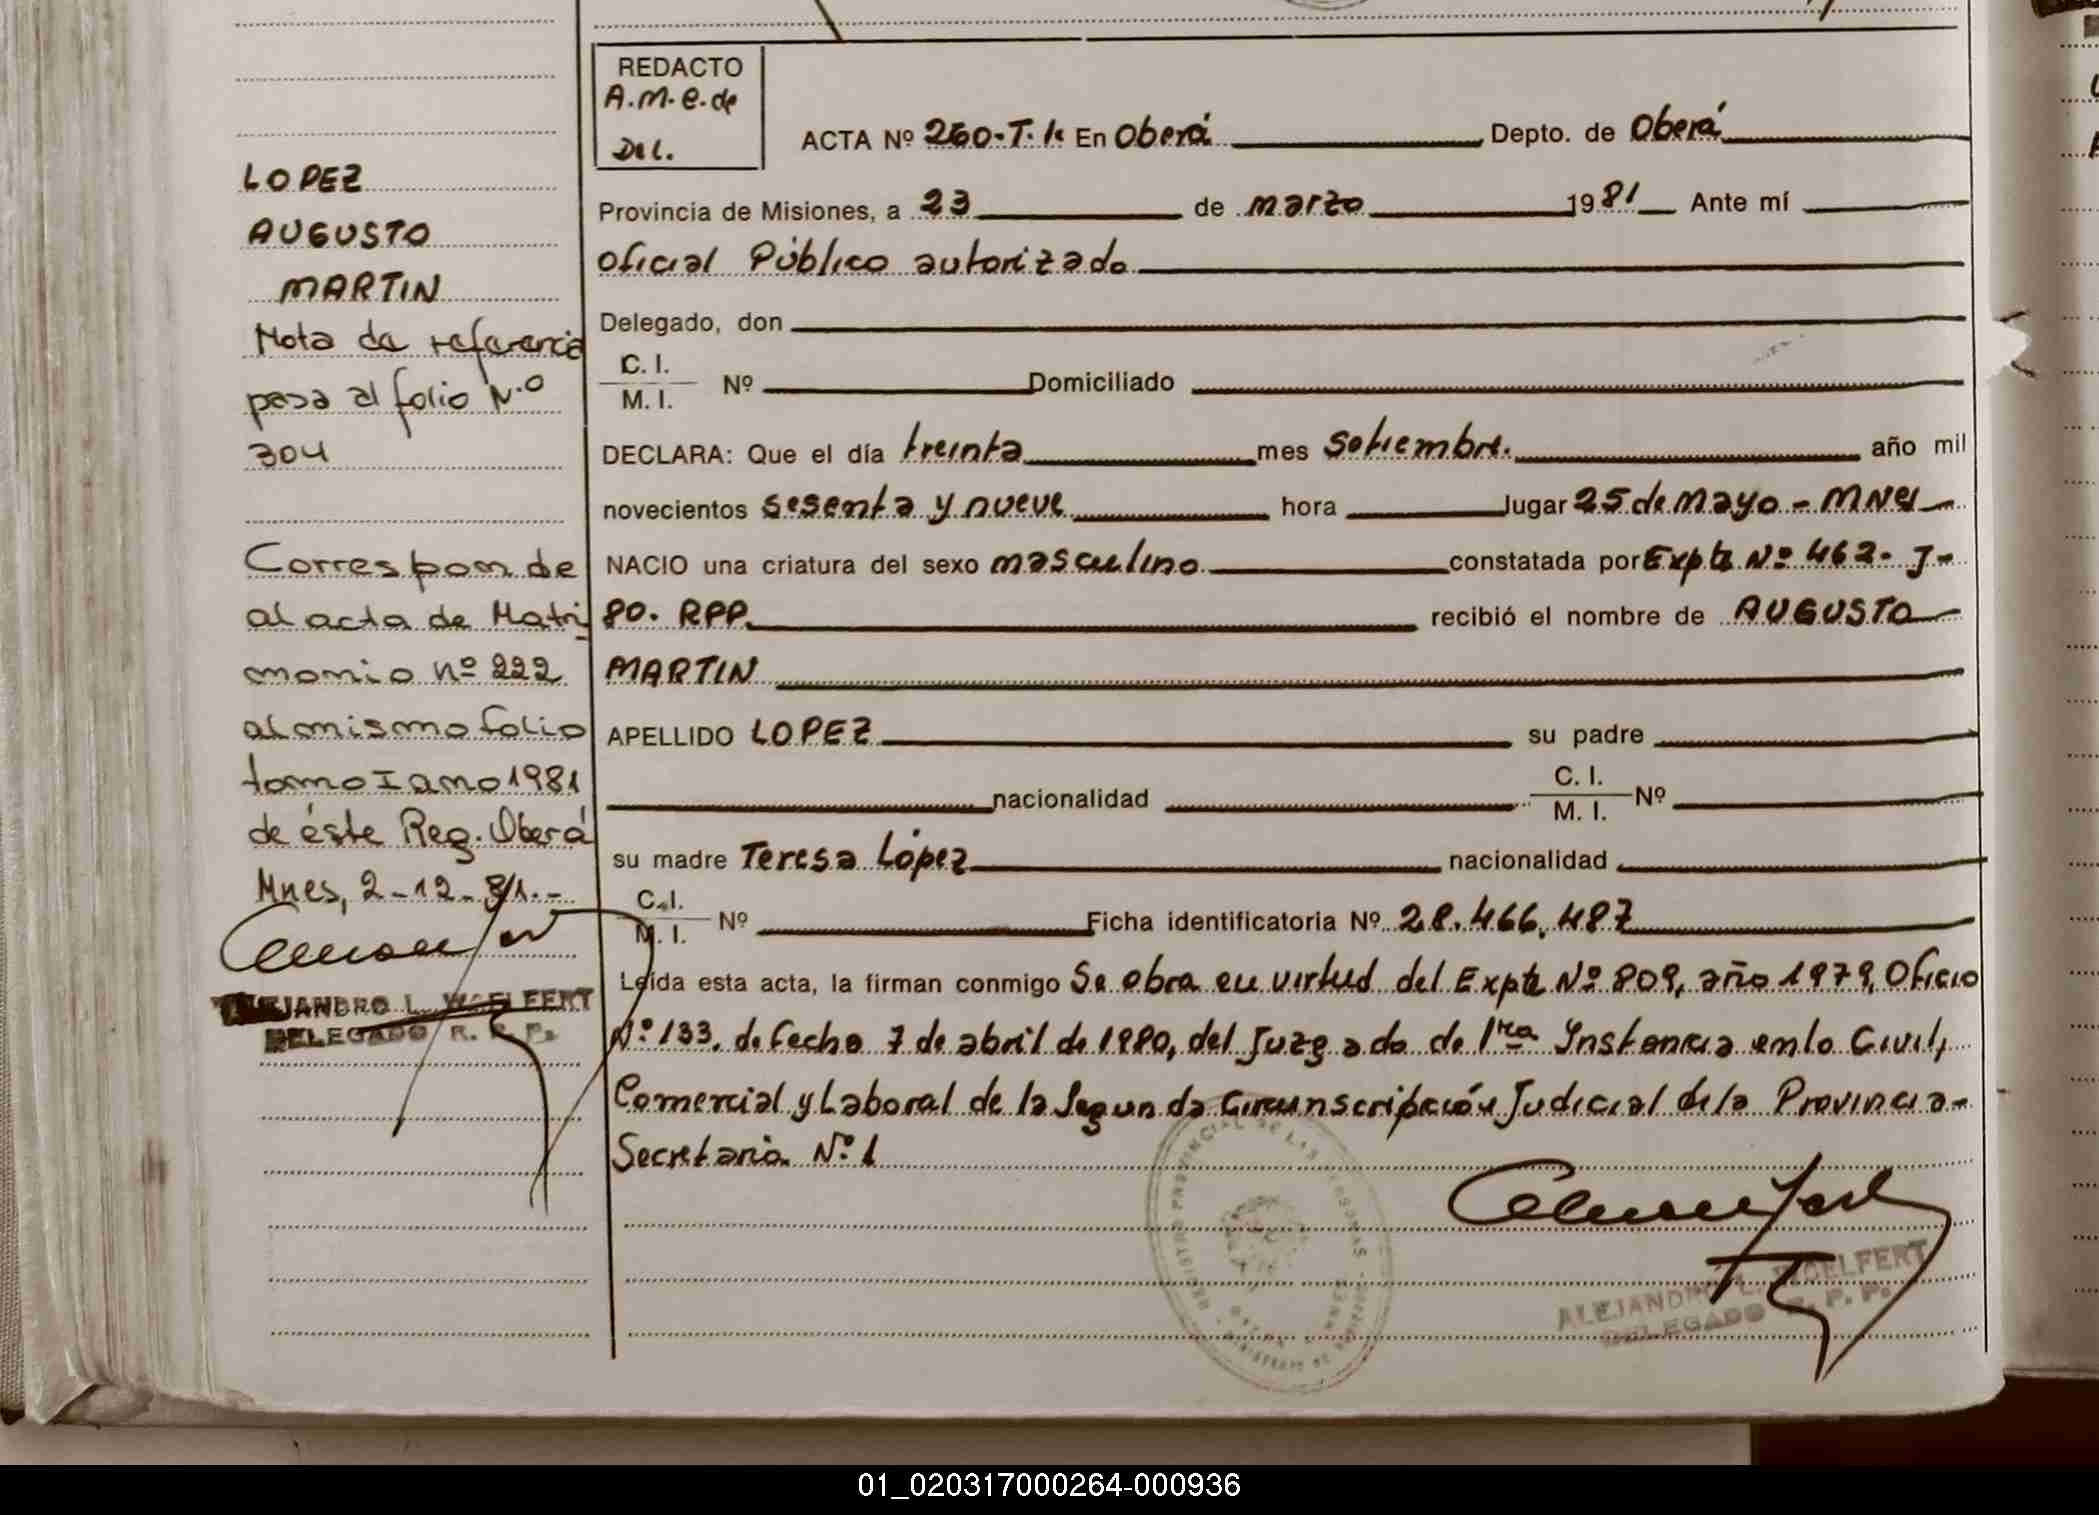 LOPEZ
AUGUSTO
MARTIN
Nota de referencia
pasa al folio N.o
304
Corresponde
al acta de Matri
monio nº 222
al mismo folio
tomo I ano 1981
de éste Reg. Oberá
Mnes, 2-12-81.-
ALEJANDRO L. WOELFERT
DELEGADO R. P. P.
REDACTO
A.M.e.de
Del.
ACTA Nº 260-T.I. En Oberá Depto. de Oberá
Provincia de Misiones, a 23 de marzo 1981 Ante mí
oficial Público autorizado
Delegado, don
C. I.
M. I. Nº Domiciliado
DECLARA: Que el día treinta mes setiembre. año mil
novecientos sesenta y nueve hora lugar 25 de Mayo - MNES
NACIO una criatura del sexo masculino constatada por Expte Nº 462- J-
80. RPP. recibió el nombre de AUGUSTO
MARTIN
APELLIDO LOPEZ su padre
nacionalidad C. I.
M. I. Nº
su madre Teresa López nacionalidad
C. I.
M. I. Nº Ficha identificatoria Nº 28.466.487
Leída esta acta, la firman conmigo Se obra en virtud del Expte Nº 809, año 1979, Oficio
Nº 133. de fecha 7 de abril de 1980, del Juzgado de 1ra Instancia en lo Civil,
Comercial y Laboral de la Segunda Circunscripción Judicial de la Provincia-
Secretaria Nº 1
REGISTRO PROVINCIAL DE LAS PERSONAS
ALEJANDRO L. WOELFERT
DELEGADO R. P. P.
01_020317000264-000936